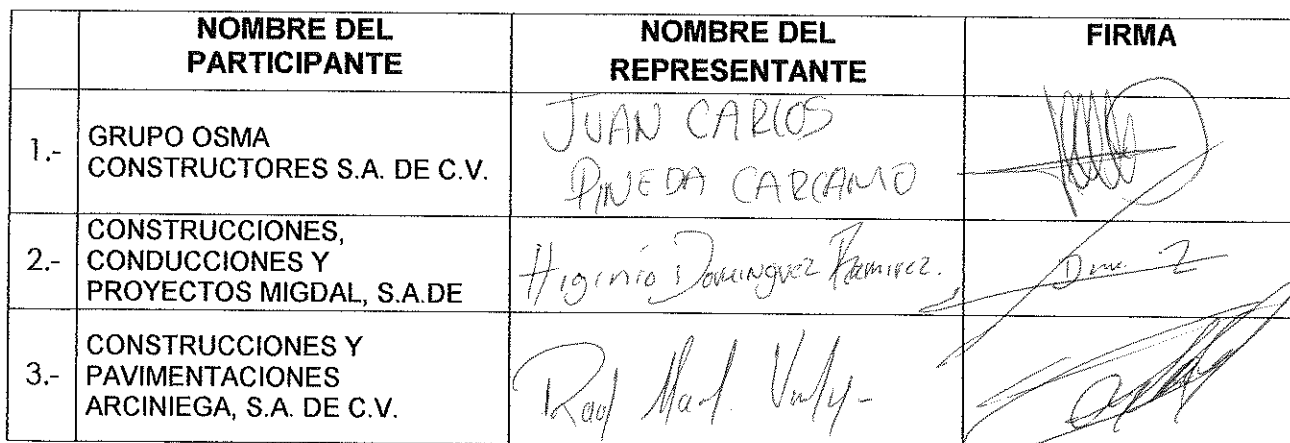 NOMBRE DEL PARTICIPANTE
NOMBRE DEL REPRESENTANTE
FIRMA
1.-
GRUPO OSMA
CONSTRUCTORES S.A. DE C.V.
JUAN CARLOS
PINEDA CARCAMO
2.-
CONSTRUCCIONES,
CONDUCCIONES Y
PROYECTOS MIGDAL, S.A.DE
Higinio Dominguez Ramirez.
3.-
CONSTRUCCIONES Y
PAVIMENTACIONES
ARCINIEGA, S.A. DE C.V.